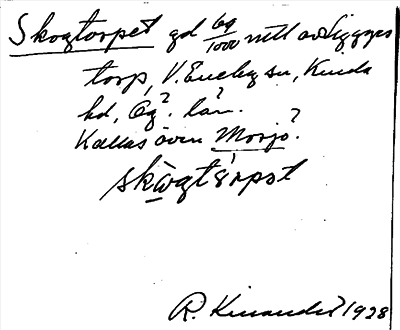 Skogtorpet gd 69/1000 mtl av Liggers
torp, V. Eneby sn, Kinda
hd, Ög. län.
Kallas även Morjo?
skògtårpət
R. Kinander 1928